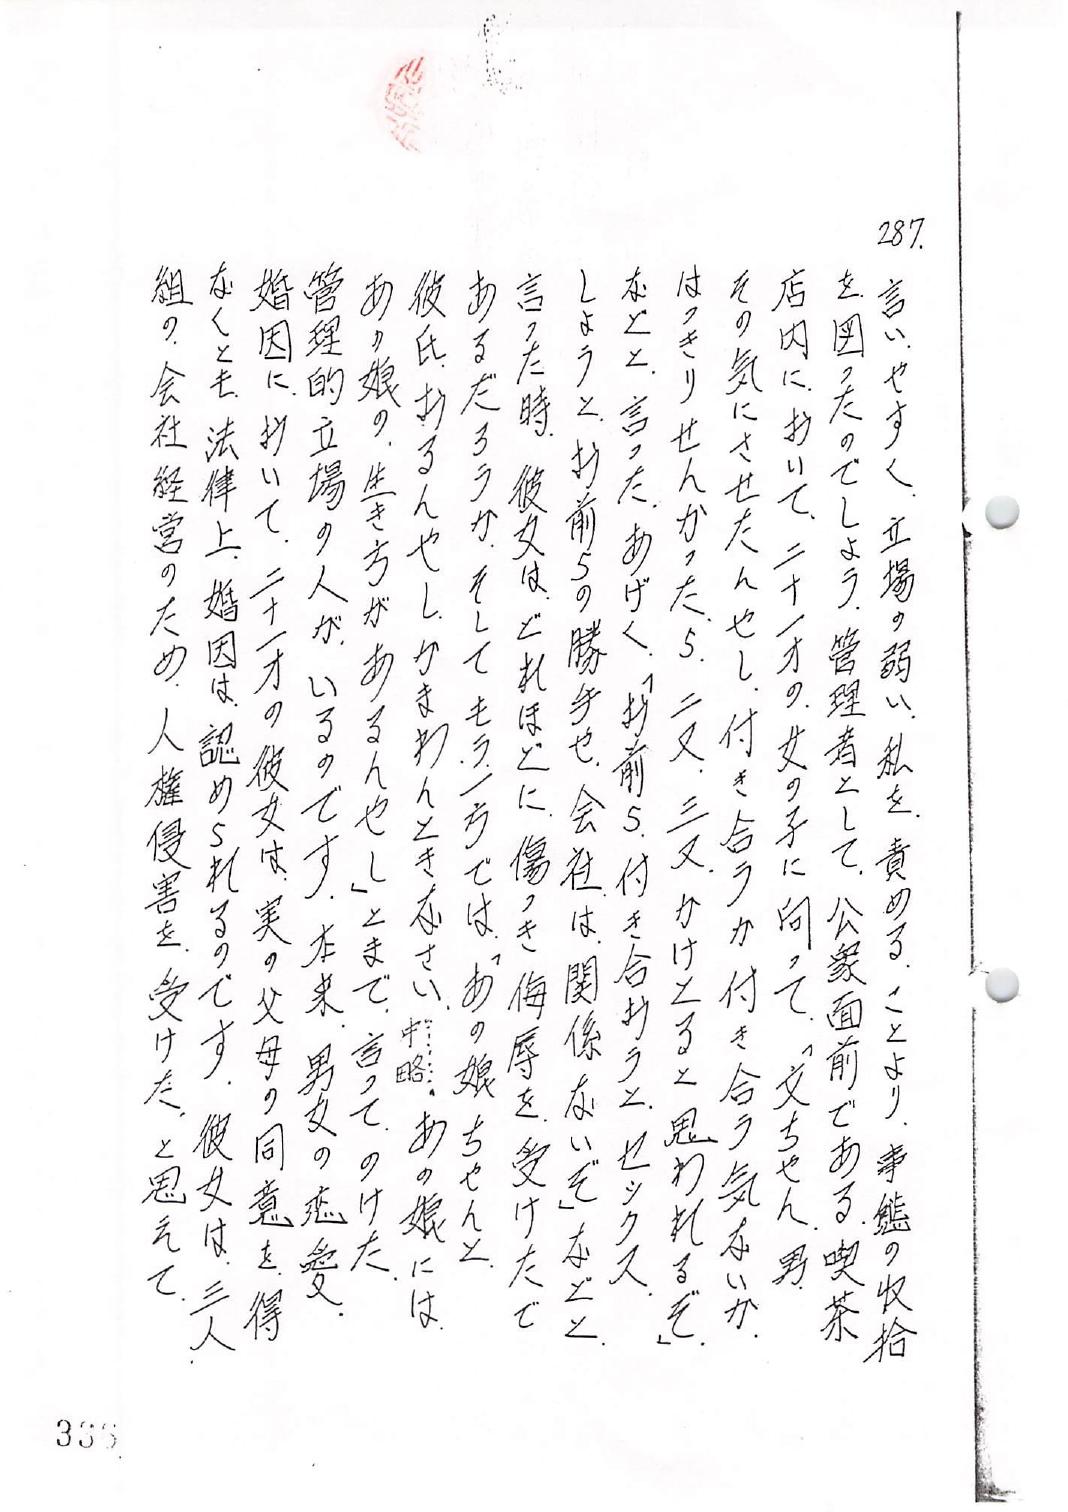 287.
言いやすく、立場の弱い、私を、責める、ことより、事態の収拾
を、図ったのでしよう、管理者として、公衆面前である、喫茶
店内に、おいて、二十一才の、女の子に向って、「文ちゃん、男、
その気にさせたんやし、付き合うか付き合う気ないか、
はっきりせんかったら、二又、三又、かけとると思われるぞ」
などと、言った、あげく、「お前ら、付き合おうと、セックス、
しようと、お前らの勝手や、会社は、関係ないぞ」などと、
言った時、彼女は、どれほどに、傷つき侮辱を、受けたで
あるだろうか、そしてもう一方では、「あの娘ちゃんと、
彼氏、おるんやし、かまわんときなさい、……中略。あの娘には、
あの娘の、生き方があるんやし」とまで、言って、のけた、
管理的立場の人が、いるのです、本来、男女の恋愛、
婚因に、おいて、二十一才の彼女は、実の父母の同意を、得
なくとも、法律上、婚因は、認められるのです、彼女は、三人、
組の、会社経営のため、人権侵害を、受けた、と思えて、